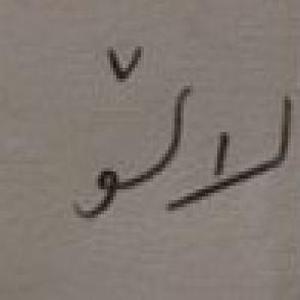 لالۆ